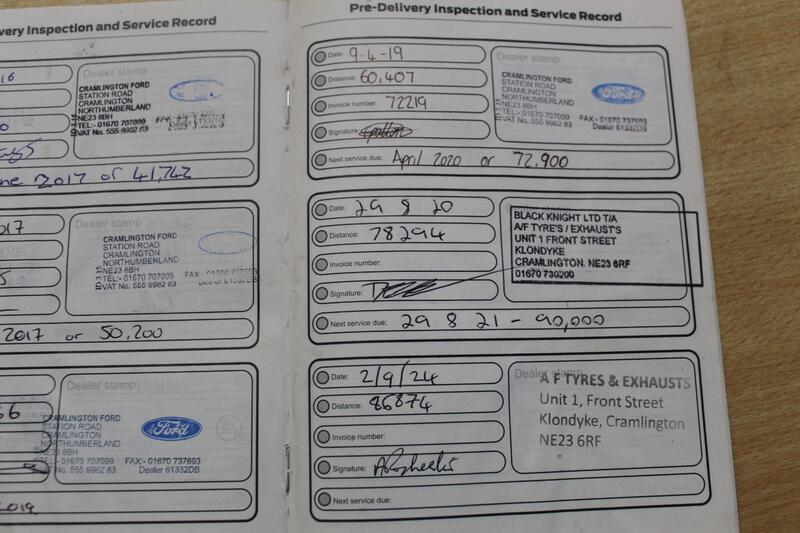 very Inspection and Service Record
16
Dealer stamp
CRAMLINGTON FORD
STATION ROAD
CRAMLINGTON
NORTHUMBERLAND
NE23 8BH
TEL:- 01670 707099
VAT No. 555 9962 83
2017 or 41,742
2017
Dealer stamp
CRAMLINGTON FORD
STATION ROAD
CRAMLINGTON
NORTHUMBERLAND
NE23 8BH
TEL:- 01670 707099
VAT No. 555 9962 83
Dealer 61332DB
2017 or 50,200
66
Dealer stamp
CRAMLINGTON FORD
STATION ROAD
CRAMLINGTON
NORTHUMBERLAND
NE23 8BH
TEL:- 01670 707099 FAX:- 01670 737693
VAT No. 555 9962 83 Dealer 61332DB
Ford
2019
Pre-Delivery Inspection and Service Record
Date: 9-4-19
Distance: 60,407
Invoice number: 72219
Signature:
Next service due: April 2020 or 72,900
Dealer stamp
CRAMLINGTON FORD
STATION ROAD
CRAMLINGTON
NORTHUMBERLAND
NE23 8BH
TEL:- 01670 707099 FAX:- 01670 737693
VAT No. 555 9962 83 Dealer 61332DB
Ford
Date: 29 8 20
Distance: 78294
Invoice number:
Signature:
Next service due: 29 8 21 - 90,000
BLACK KNIGHT LTD T/A
A/F TYRE'S / EXHAUST'S
UNIT 1 FRONT STREET
KLONDYKE
CRAMLINGTON. NE23 6RF
01670 730200
Date: 2/9/24
Distance: 86874
Invoice number:
Signature:
Next service due:
Dealer stamp
A F TYRES & EXHAUSTS
Unit 1, Front Street
Klondyke, Cramlington
NE23 6RF